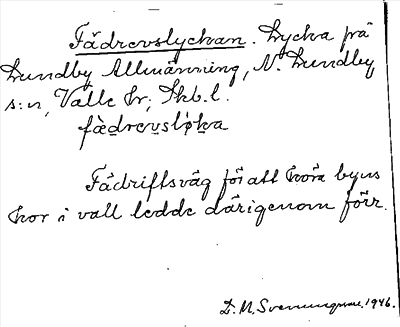 Fädrevslyckan. Lycka frå
Lundby Allmänning, N. Lundby
s:n, Valle hr; Skb.l.
fàe̱dre̱vslỏka
Fädriftsväg för att köra byns
kor i vall ledde därigenom förr.
D. M. 1946.